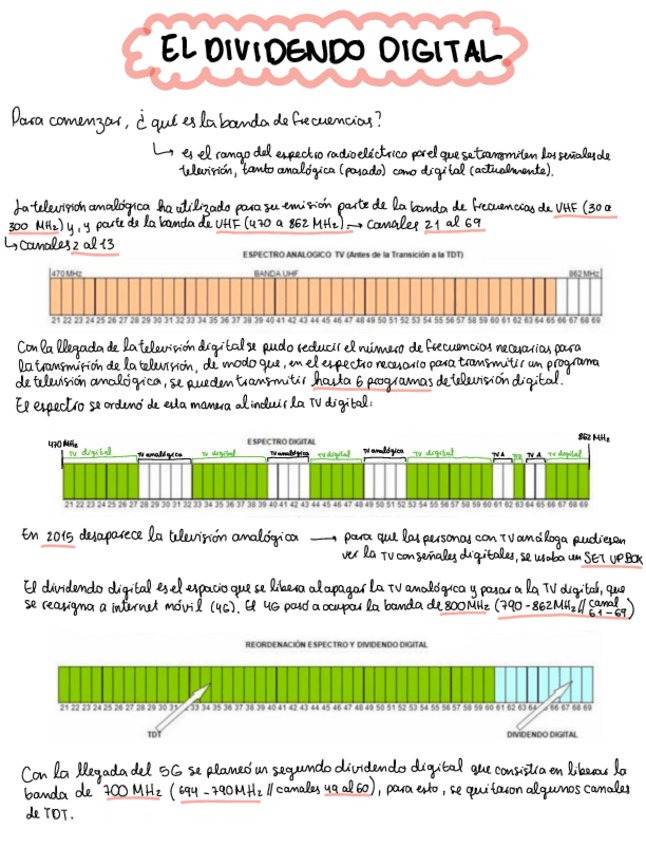 EL DIVIDENDO DIGITAL
Para comenzar, ¿qué es la banda de frecuencias?
↳ es el rango del espectro radioeléctrico por el que se transmiten las señales de
televisión, tanto analógica (pasado) como digital (actualmente).
La televisión analógica ha utilizado para su emisión parte de la banda de frecuencias de VHF (30 a
300 MHz) y, y parte de la banda de UHF (470 a 862 MHz). → canales 21 al 69
↳ canales 2 al 13
ESPECTRO ANALOGICO TV (Antes de la Transición a la TDT)
470 MHz BANDA UHF 862 MHz
21 22 23 24 25 26 27 28 29 30 31 32 33 34 35 36 37 38 39 40 41 42 43 44 45 46 47 48 49 50 51 52 53 54 55 56 57 58 59 60 61 62 63 64 65 66 67 68 69
Con la llegada de la televisión digital se pudo reducir el número de frecuencias necesarias para
la transmisión de la televisión, de modo que, en el espectro necesario para transmitir un programa
de televisión analógica, se pueden transmitir hasta 6 programas de televisión digital.
El espectro se ordenó de esta manera al incluir la TV digital:
470 MHz ESPECTRO DIGITAL 862 MHz
TV digital TV analógica TV digital TV analógica TV digital TV analógica TV digital TV A TV A TV digital
21 22 23 24 25 26 27 28 29 30 31 32 33 34 35 36 37 38 39 40 41 42 43 44 45 46 47 48 49 50 51 52 53 54 55 56 57 58 59 60 61 62 63 64 65 66 67 68 69
En 2015 desaparece la televisión analógica → para que las personas con TV análoga pudiesen
ver la TV con señales digitales, se usaba un SET UP BOX
El dividendo digital es el espacio que se libera al apagar la TV analógica y pasar a la TV digital, que
se reasigna a internet móvil (4G). El 4G pasó a ocupar la banda de 800 MHz (790-862 MHz // canal
61-69)
REORDENACIÓN ESPECTRO Y DIVIDENDO DIGITAL
21 22 23 24 25 26 27 28 29 30 31 32 33 34 35 36 37 38 39 40 41 42 43 44 45 46 47 48 49 50 51 52 53 54 55 56 57 58 59 60 61 62 63 64 66 67 68 69
TDT DIVIDENDO DIGITAL
Con la llegada del 5G se planeó un segundo dividendo digital que consistía en liberar la
banda de 700 MHz (694-790 MHz // canales 49 al 60), para esto, se quitaron algunos canales
de TDT.